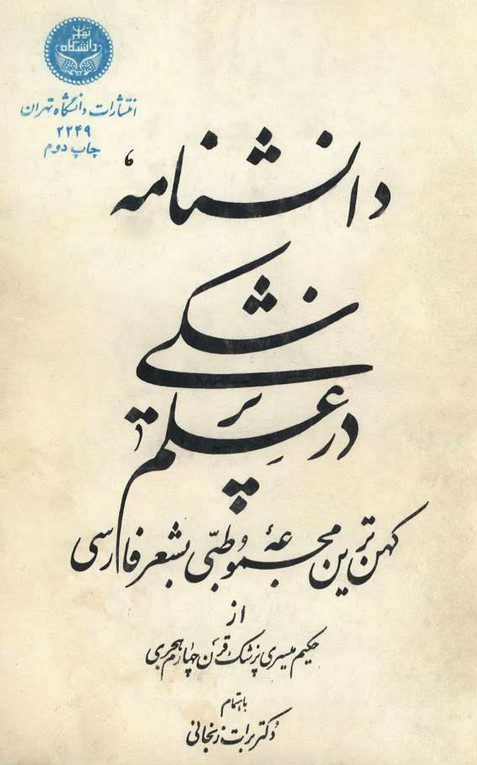 دانشگاه
تهران
انتشارات دانشگاه تهران
۲۲۴۹
چاپ دوم
دانشنامهٔ
در علم پزشکی
کهن ترین مجموعهٔ طبّی بشعر فارسی
از
حکیم میسری پزشک قرن چهارم هجری
باهتمام
دکتر برات زنجانی